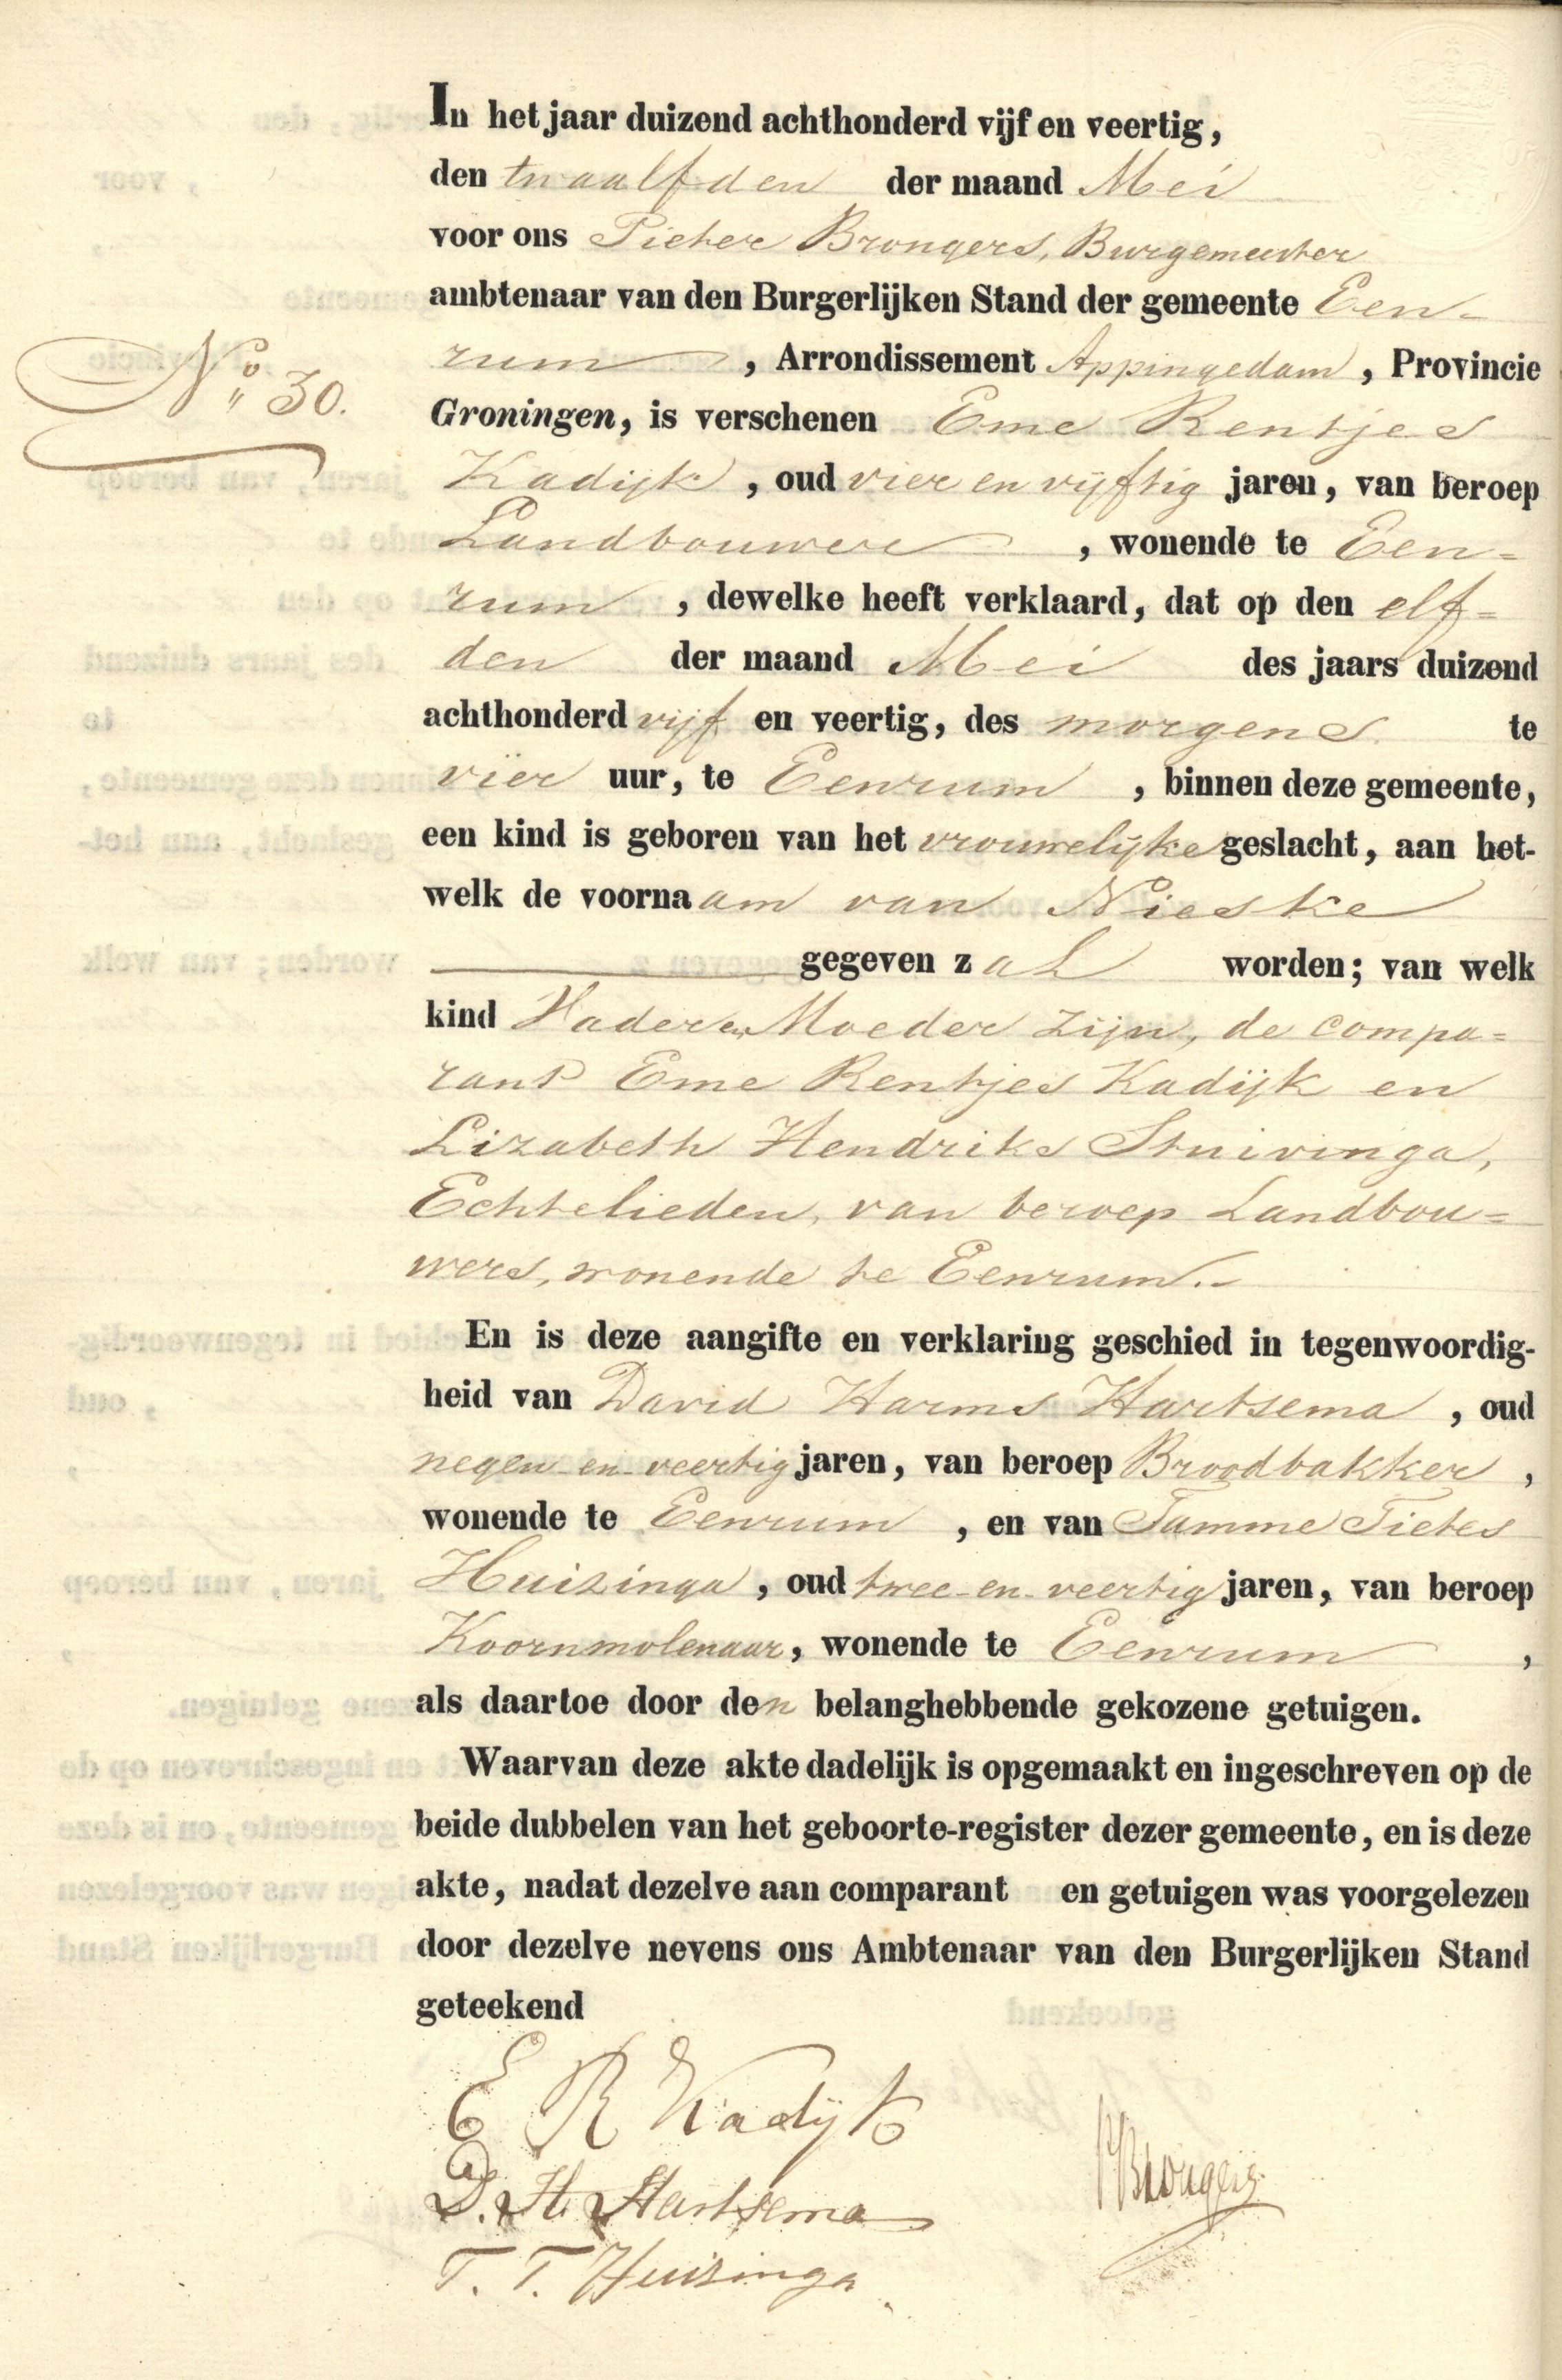 In het jaar duizend achthonderd vijf en veertig,
den twaalfden der maand Mei
voor ons Pieter Brongers, Burgemeester
ambtenaar van den Burgerlijken Stand der gemeente Een-
rum, Arrondissement Appingedam, Provincie
No. 30.
Groningen, is verschenen Eme Rentjes
Kadijk, oud vier en vijftig jaren, van beroep
Landbouwer, wonende te Een=
rum, dewelke heeft verklaard, dat op den elf=
den der maand Mei des jaars duizend
achthonderd vijf en veertig, des morgens te
vier uur, te Eenrum, binnen deze gemeente,
een kind is geboren van het vrouwelijke geslacht, aan het-
welk de voornaam van Nieske
gegeven zal worden; van welk
kind Vader en Moeder zijn, de compa=
rant Eme Rentjes Kadijk en
Lizabeth Hendriks Stuivinga,
Echtelieden, van beroep Landbou=
wers, wonende te Eenrum.-
En is deze aangifte en verklaring geschied in tegenwoordig-
heid van David Harms Hartsema, oud
negen-en-veertig jaren, van beroep Broodbakker,
wonende te Eenrum, en van Tamme Tietes
Huizinga, oud twee-en-veertig jaren, van beroep
Koornmolenaar, wonende te Eenrum,
als daartoe door den belanghebbende gekozene getuigen.
Waarvan deze akte dadelijk is opgemaakt en ingeschreven op de
beide dubbelen van het geboorte-register dezer gemeente, en is deze
akte, nadat dezelve aan comparant en getuigen was voorgelezen
door dezelve nevens ons Ambtenaar van den Burgerlijken Stand
geteekend
E R Kadijk
D. H. Hartsema
PBrongers
T. T. Huizinga